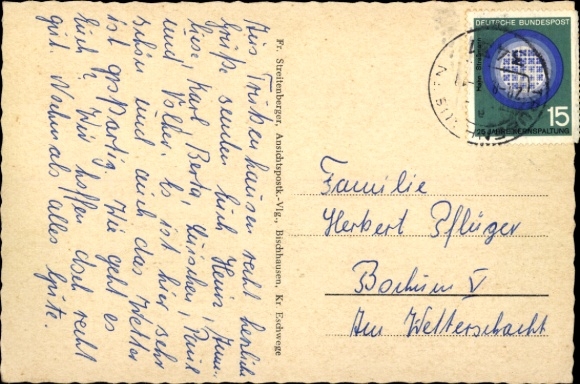 Aus Trüßenhausen recht herzliche
Grüße senden Euch Heinz, Anne-
liese, Karl, Berta, Luischen, Paul
und Volker. Es ist hier sehr
schön und auch das Wetter
ist großartig. Wie geht es
Euch? Wir hoffen doch recht
gut. Nochmals alles Gute.
Fr. Streitenberger, Ansichtspostk.-Vlg., Bischhausen, Kr Eschwege
DEUTSCHE BUNDESPOST
Hahn Straßmann
15
25 JAHRE KERNSPALTUNG
Familie
Herbert Pflüger
Bochum V
Am Wetterschacht